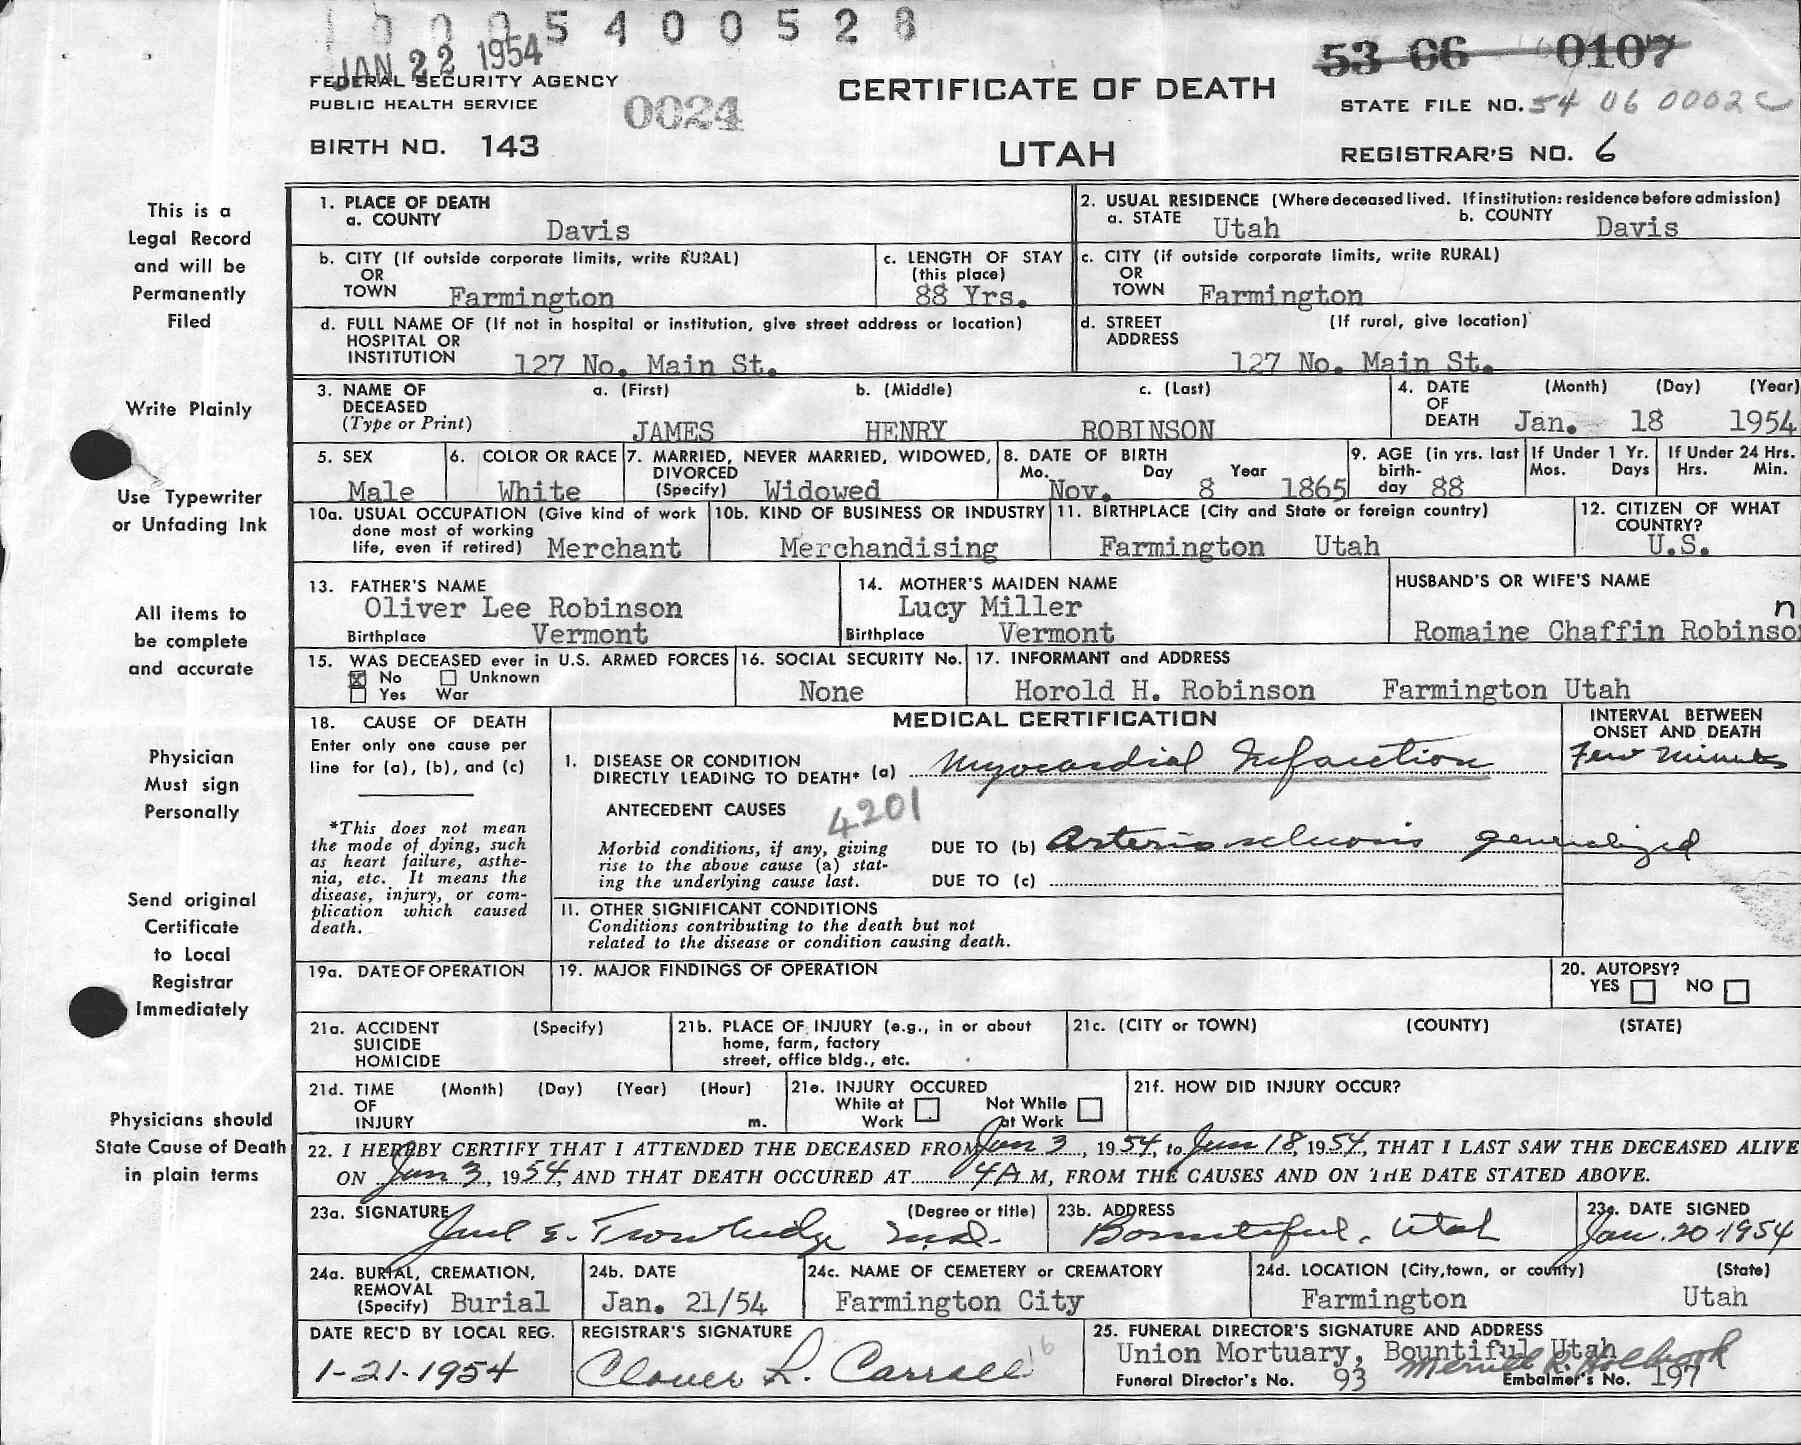 1 0 0 5 4 0 0 5 2 8
JAN 22 1954
53 06 0107
FEDERAL SECURITY AGENCY
PUBLIC HEALTH SERVICE
0024
CERTIFICATE OF DEATH
STATE FILE NO. 54 06 0002
BIRTH NO. 143
UTAH
REGISTRAR'S NO. 6
This is a
Legal Record
and will be
Permanently
Filed
Write Plainly
Use Typewriter
or Unfading Ink
All items to
be complete
and accurate
Physician
Must sign
Personally
Send original
Certificate
to Local
Registrar
Immediately
Physicians should
State Cause of Death
in plain terms
1. PLACE OF DEATH
a. COUNTY Davis
2. USUAL RESIDENCE (Where deceased lived. If institution: residence before admission)
a. STATE Utah b. COUNTY Davis
b. CITY (If outside corporate limits, write RURAL)
OR
TOWN Farmington
c. LENGTH OF STAY
(this place)
88 Yrs.
c. CITY (if outside corporate limits, write RURAL)
OR
TOWN Farmington
d. FULL NAME OF (If not in hospital or institution, give street address or location)
HOSPITAL OR
INSTITUTION 127 No. Main St.
d. STREET (If rural, give location)
ADDRESS
127 No. Main St.
3. NAME OF a. (First) b. (Middle) c. (Last)
DECEASED
(Type or Print) JAMES HENRY ROBINSON
4. DATE (Month) (Day) (Year)
OF
DEATH Jan. 18 1954
5. SEX
Male
6. COLOR OR RACE
White
7. MARRIED, NEVER MARRIED, WIDOWED,
DIVORCED
(Specify) Widowed
8. DATE OF BIRTH
Mo. Day Year
Nov. 8 1865
9. AGE (in yrs. last
birth-
day 88
If Under 1 Yr.
Mos. Days
If Under 24 Hrs.
Hrs. Min.
10a. USUAL OCCUPATION (Give kind of work
done most of working
life, even if retired) Merchant
10b. KIND OF BUSINESS OR INDUSTRY
Merchandising
11. BIRTHPLACE (City and State or foreign country)
Farmington Utah
12. CITIZEN OF WHAT
COUNTRY?
U.S.
13. FATHER'S NAME
Oliver Lee Robinson
Birthplace Vermont
14. MOTHER'S MAIDEN NAME
Lucy Miller
Birthplace Vermont
HUSBAND'S OR WIFE'S NAME
n
Romaine Chaffin Robinso
15. WAS DECEASED ever in U.S. ARMED FORCES
No Unknown
Yes War
16. SOCIAL SECURITY No.
None
17. INFORMANT and ADDRESS
Horold H. Robinson Farmington Utah
18. CAUSE OF DEATH
Enter only one cause per
line for (a), (b), and (c)
*This does not mean
the mode of dying, such
as heart failure, asthe-
nia, etc. It means the
disease, injury, or com-
plication which caused
death.
MEDICAL CERTIFICATION
INTERVAL BETWEEN
ONSET AND DEATH
1. DISEASE OR CONDITION
DIRECTLY LEADING TO DEATH* (a) Myocardial Infarction Few Minutes
ANTECEDENT CAUSES
4201
Morbid conditions, if any, giving
rise to the above cause (a) stat-
ing the underlying cause last.
DUE TO (b) Arteriosclerosis generalized
DUE TO (c)
11. OTHER SIGNIFICANT CONDITIONS
Conditions contributing to the death but not
related to the disease or condition causing death.
19a. DATE OF OPERATION
19. MAJOR FINDINGS OF OPERATION
20. AUTOPSY?
YES NO
21a. ACCIDENT (Specify)
SUICIDE
HOMICIDE
21b. PLACE OF INJURY (e.g., in or about
home, farm, factory
street, office bldg., etc.
21c. (CITY or TOWN) (COUNTY) (STATE)
21d. TIME (Month) (Day) (Year) (Hour)
OF
INJURY m.
21e. INJURY OCCURED
While at Not While
Work at Work
21f. HOW DID INJURY OCCUR?
22. I HEREBY CERTIFY THAT I ATTENDED THE DECEASED FROM Jan 3, 1954, to Jan 18, 1954, THAT I LAST SAW THE DECEASED ALIVE
ON Jan 3, 1954, AND THAT DEATH OCCURED AT 4A M, FROM THE CAUSES AND ON THE DATE STATED ABOVE.
23a. SIGNATURE (Degree or title)
E. Trowbridge M.D.
23b. ADDRESS
Bountiful, Utah
23c. DATE SIGNED
Jan. 20 1954
24a. BURIAL, CREMATION,
REMOVAL
(Specify) Burial
24b. DATE
Jan. 21/54
24c. NAME OF CEMETERY or CREMATORY
Farmington City
24d. LOCATION (City, town, or county) (State)
Farmington Utah
DATE REC'D BY LOCAL REG.
1-21-1954
REGISTRAR'S SIGNATURE
L. Carroll
25. FUNERAL DIRECTOR'S SIGNATURE AND ADDRESS
Union Mortuary, Bountiful Utah
Merrill R. Holbrook
Funeral Director's No. 93 Embalmer's No. 197